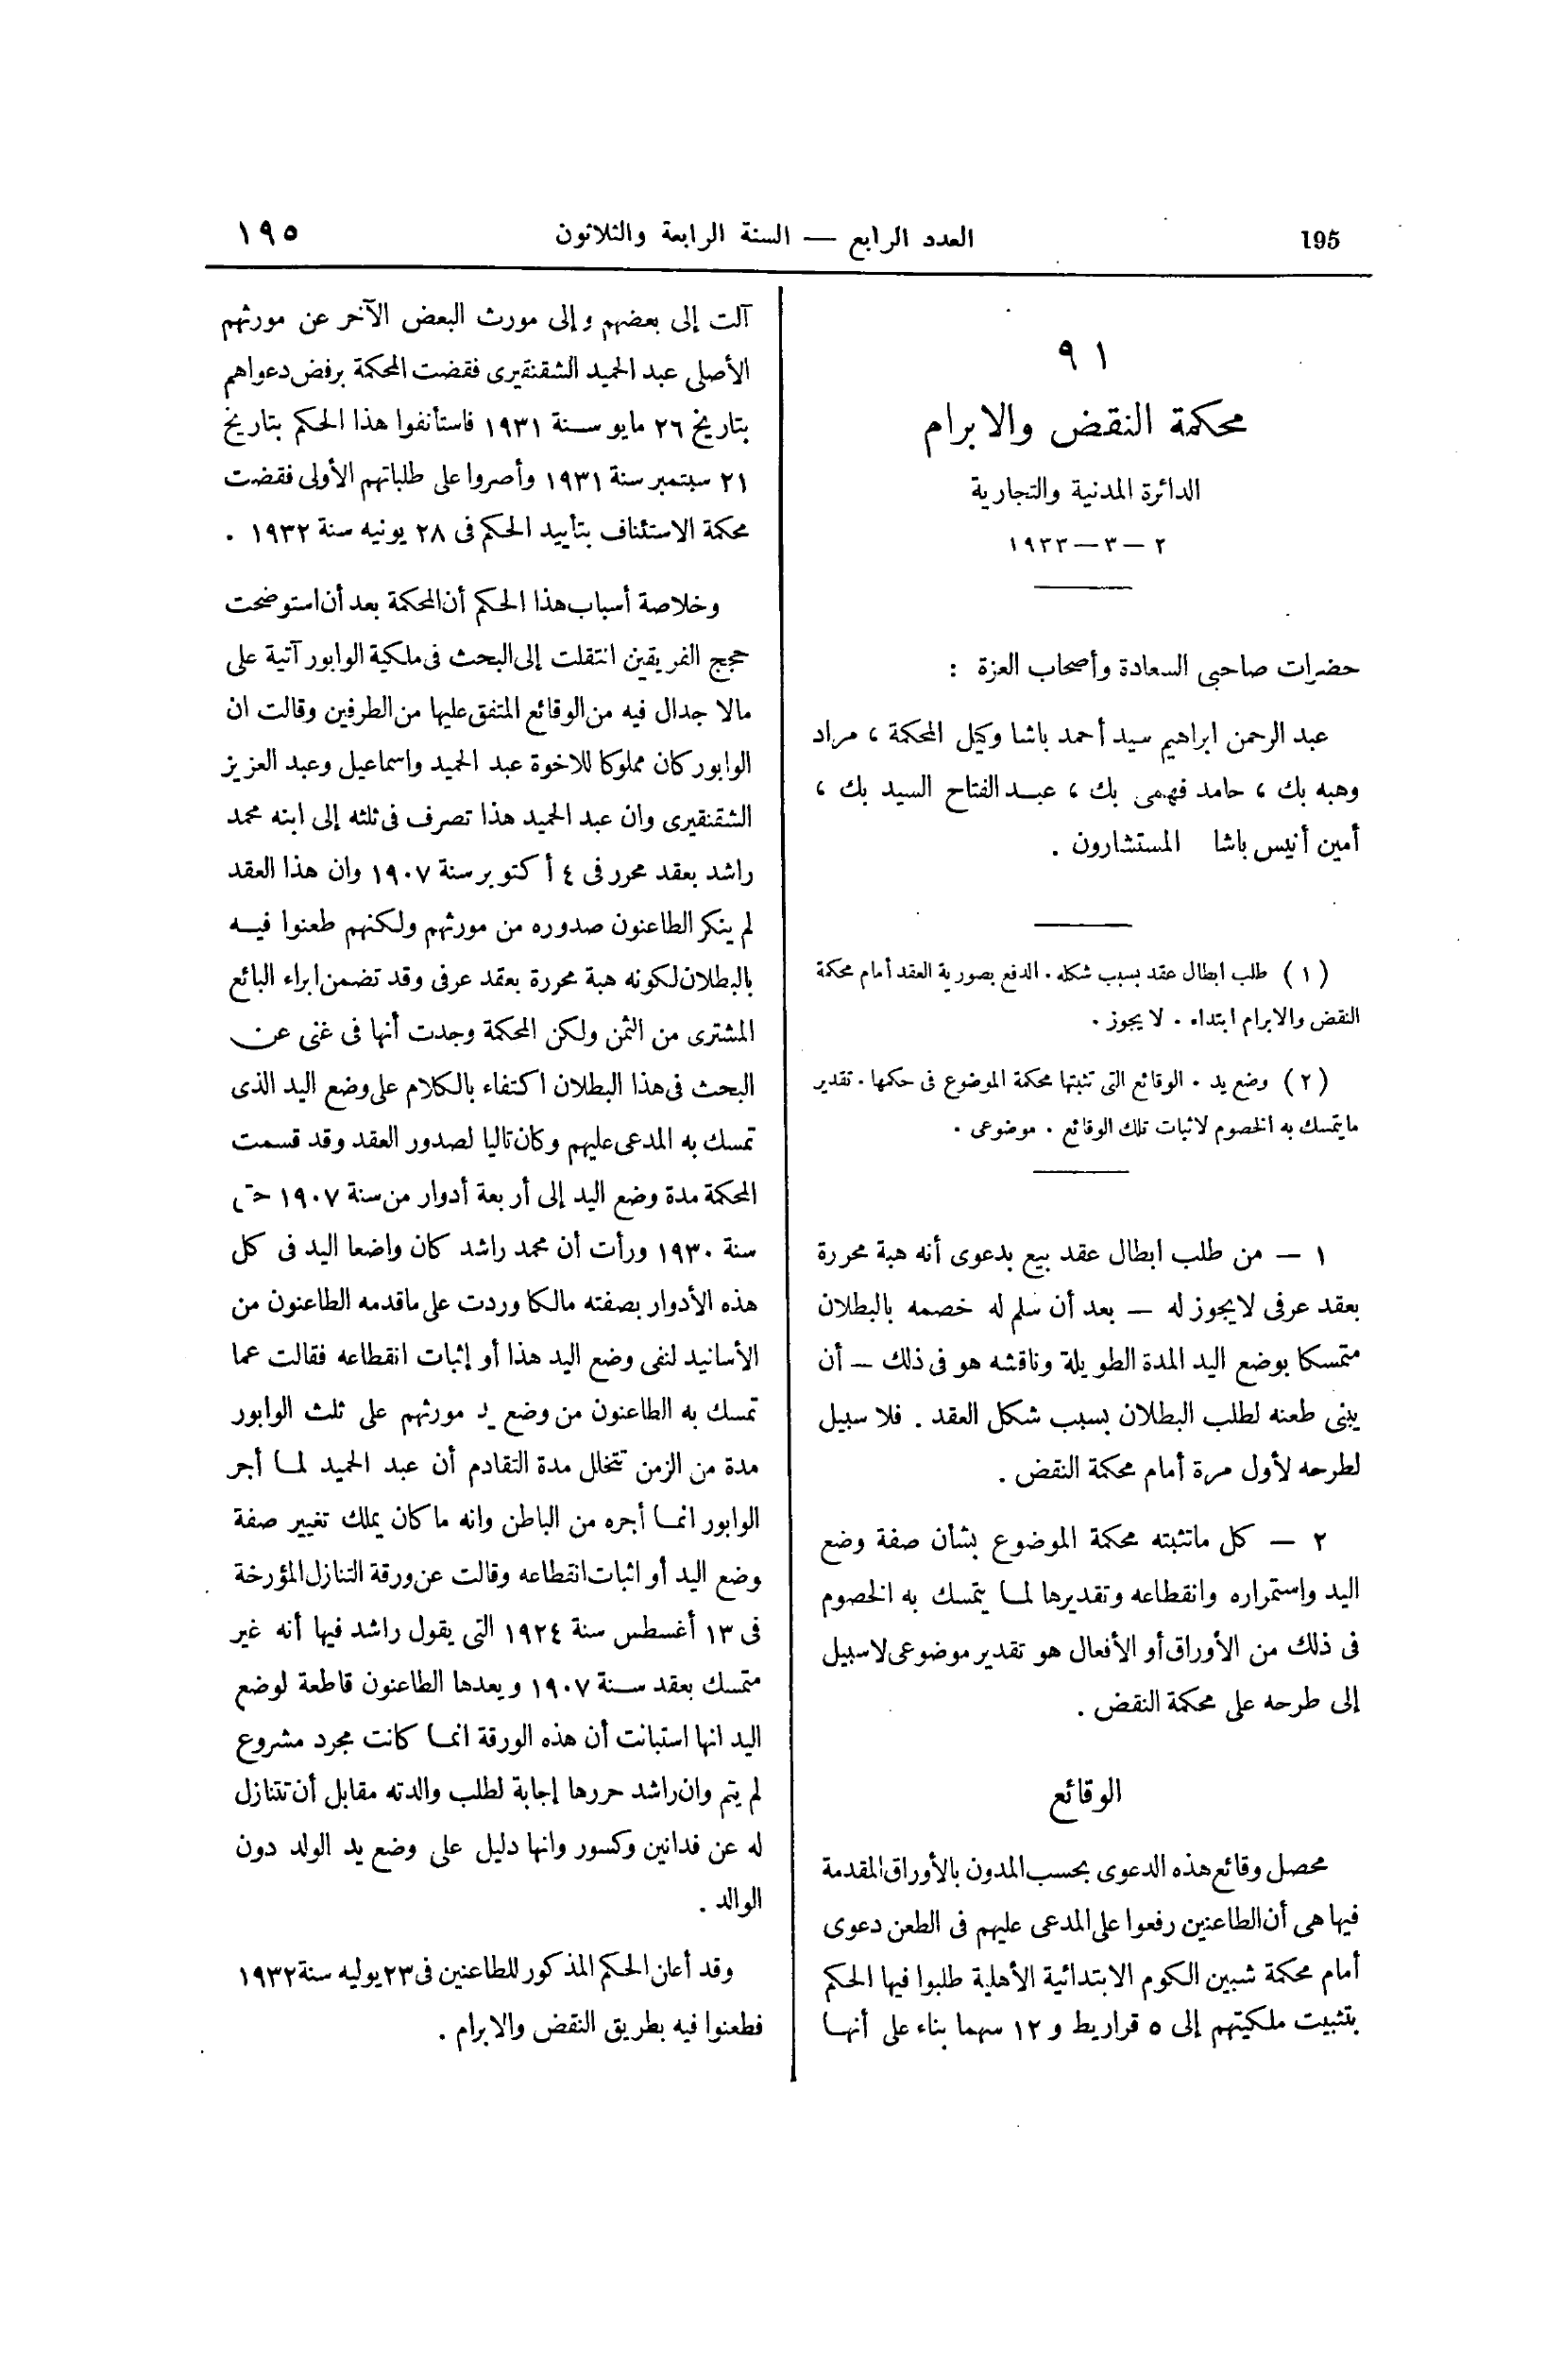 195
العدد الرابع — السنة الرابعة والثلاثون
١٩٥
٩١
محكمة النقض والابرام
الدائرة المدنية والتجارية
٢ — ٣ — ١٩٣٣
حضرات صاحبى السعادة وأصحاب العزة :
عبد الرحمن ابراهيم سيد أحمد باشا وكيل المحكمة ، مراد
وهبه بك ، حامد فهمى بك ، عبد الفتاح السيد بك ،
أمين أنيس باشا المستشارون .
( ١ ) طلب ابطال عقد بسبب شكله . الدفع بصورية العقد أمام محكمة
النقض والابرام ابتداء . لا يجوز .
( ٢ ) وضع يد . الوقائع التى تثبتها محكمة الموضوع فى حكمها . تقدير
مايتمسك به الخصوم لاثبات تلك الوقائع . موضوعى .
١ — من طلب ابطال عقد بيع بدعوى أنه هبة محررة
بعقد عرفى لايجوز له — بعد أن سلم له خصمه بالبطلان
متمسكا بوضع اليد المدة الطويلة وناقشه هو فى ذلك — أن
يبنى طعنه لطلب البطلان بسبب شكل العقد . فلا سبيل
لطرحه لأول مرة أمام محكمة النقض .
٢ — كل ماتثبته محكمة الموضوع بشأن صفة وضع
اليد واستمراره وانقطاعه وتقديرها لما يتمسك به الخصوم
فى ذلك من الأوراق أو الأفعال هو تقدير موضوعى لاسبيل
إلى طرحه على محكمة النقض .
الوقائع
محصل وقائع هذه الدعوى بحسب المدون بالأوراق المقدمة
فيها هى أن الطاعنين رفعوا على المدعى عليهم فى الطعن دعوى
أمام محكمة شبين الكوم الابتدائية الأهلية طلبوا فيها الحكم
بتثبيت ملكيتهم إلى ٥ قراريط و ١٢ سهما بناء على أنها
آلت إلى بعضهم وإلى مورث البعض الآخر عن مورثهم
الأصلى عبد الحميد الشقنقيرى فقضت المحكمة برفض دعواهم
بتاريخ ٢٦ مايو سنة ١٩٣١ فاستأنفوا هذا الحكم بتاريخ
٢١ سبتمبر سنة ١٩٣١ وأصروا على طلباتهم الأولى فقضت
محكمة الاستئناف بتأييد الحكم فى ٢٨ يونيه سنة ١٩٣٢ .
وخلاصة أسباب هذا الحكم أن المحكمة بعد أن استوضحت
حجج الفريقين انتقلت إلى البحث فى ملكية الوابور آتية على
مالا جدال فيه من الوقائع المتفق عليها من الطرفين وقالت ان
الوابور كان مملوكا للاخوة عبد الحميد واسماعيل وعبد العزيز
الشقنقيرى وان عبد الحميد هذا تصرف فى ثلثه إلى ابنه محمد
راشد بعقد محرر فى ٤ أكتوبر سنة ١٩٠٧ وان هذا العقد
لم ينكر الطاعنون صدوره من مورثهم ولكنهم طعنوا فيه
بالبطلان لكونه هبة محررة بعقد عرفى وقد تضمن ابراء البائع
المشترى من الثمن ولكن المحكمة وجدت أنها فى غنى عن
البحث فى هذا البطلان اكتفاء بالكلام على وضع اليد الذى
تمسك به المدعى عليهم وكان تاليا لصدور العقد وقد قسمت
المحكمة مدة وضع اليد إلى أربعة أدوار من سنة ١٩٠٧ حتى
سنة ١٩٣٠ ورأت أن محمد راشد كان واضعا اليد فى كل
هذه الأدوار بصفته مالكا وردت على ماقدمه الطاعنون من
الأسانيد لنفى وضع اليد هذا أو إثبات انقطاعه فقالت عما
تمسك به الطاعنون من وضع يد مورثهم على ثلث الوابور
مدة من الزمن تتخلل مدة التقادم أن عبد الحميد لما أجر
الوابور انما أجره من الباطن وانه ما كان يملك تغيير صفة
وضع اليد أو اثبات انقطاعه وقالت عن ورقة التنازل المؤرخة
فى ١٣ أغسطس سنة ١٩٢٤ التى يقول راشد فيها أنه غير
متمسك بعقد سنة ١٩٠٧ ويعدها الطاعنون قاطعة لوضع
اليد انها استبانت أن هذه الورقة انما كانت مجرد مشروع
لم يتم وان راشد حررها إجابة لطلب والدته مقابل أن تتنازل
له عن فدانين وكسور وانها دليل على وضع يد الولد دون
الوالد .
وقد أعلن الحكم المذكور للطاعنين فى ٢٣ يوليه سنة ١٩٣٢
فطعنوا فيه بطريق النقض والابرام .